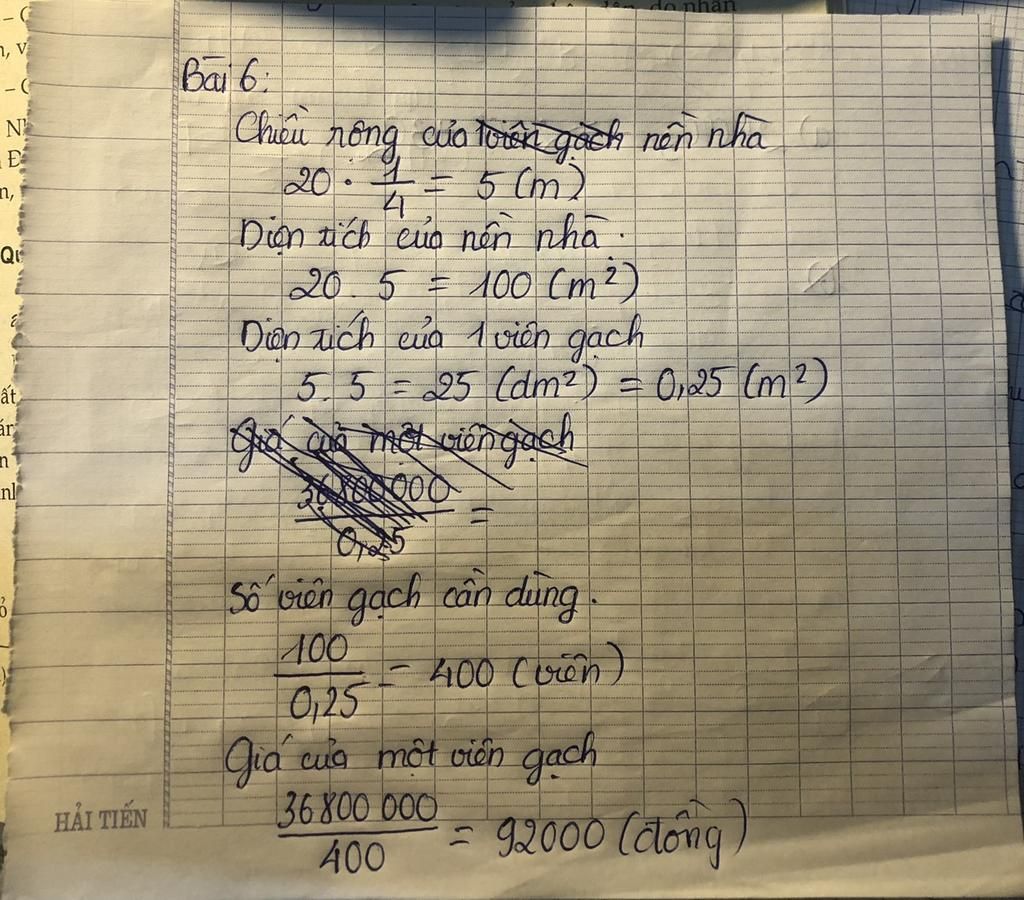 do nhân
Bài 6:
Chiều rộng của viên gạch nền nhà
20 . 1/4 = 5 (m)
Diện tích của nền nhà.
20 . 5 = 100 (m²)
Diện tích của 1 viên gạch
5. 5 = 25 (dm²) = 0,25 (m²)
Giá của một viên gạch
36800000/0,25 =
Số viên gạch cần dùng.
100/0,25 = 400 (viên)
Giá của một viên gạch
36800 000/400 = 92000 (đồng)
HẢI TIẾN